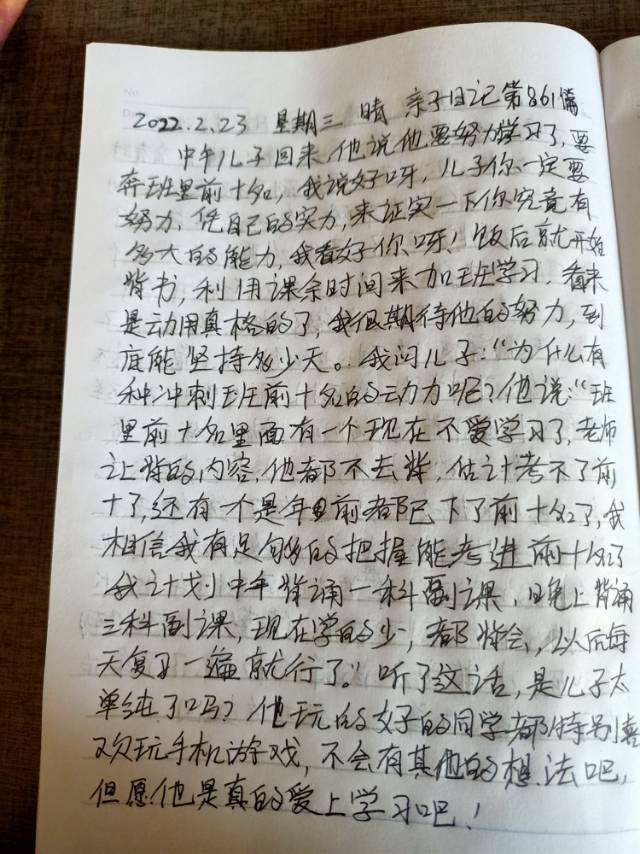 2022.2.23 星期三 晴 亲子日记第861篇
中午儿子回来,他说他要努力学习了,要
奔班里前十名,我说好呀,儿子你一定要
努力,凭自己的实力,来证实一下你究竟有
多大的能力,我看好你呀!饭后就开始
背书,利用课余时间来加班学习,看来
是动用真格的了,我很期待他的努力,到
底能坚持多少天。我问儿子:“为什么有
种冲刺班前十名的动力呢?他说:“班
里前十名里面有一个现在不爱学习了,老师
让背的内容,他都不去背,估计考不了前
十了,还有一个是年前都已下了前十名了,我
相信我有足够的把握能考进前十名了
我计划中午背诵一科副课,晚上背诵
三科副课,现在学的少,都背会,以后每
天复习一遍就行了。”听了这话,是儿子太
单纯了吗?他玩的好的同学都特别喜
欢玩手机游戏,不会有其他的想法吧,
但愿他是真的爱上学习吧!